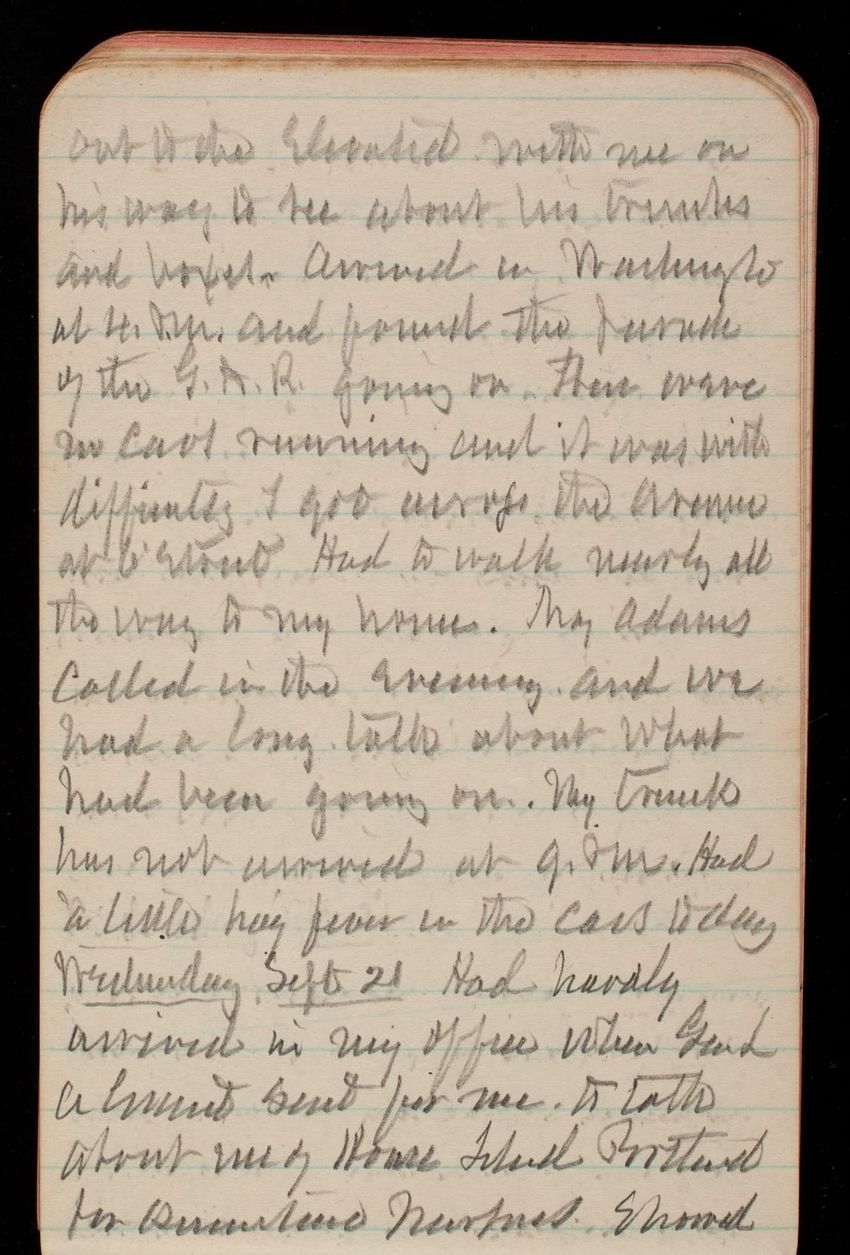 out to the Elevated with me on
his way to see about his trunks
and boxes. Arrived in Washington
at 4. P.M. and found the parade
of the G.A.R. going on. There were
no cars running and it was with
difficulty I got across the avenue
at 6 Street Had to walk nearly all
the way to my house. May Adams
called in the evening and we
had a long talk about what
had been going on. My trunk
has not arrived at 9. P.M. Had
a little hay fever in the cars today
Wednesday Sept 21 Had hardly
arrived in my office when Genl
sent for me to talk
about use of House Island Portland
for Quarantine Purposes. Showed